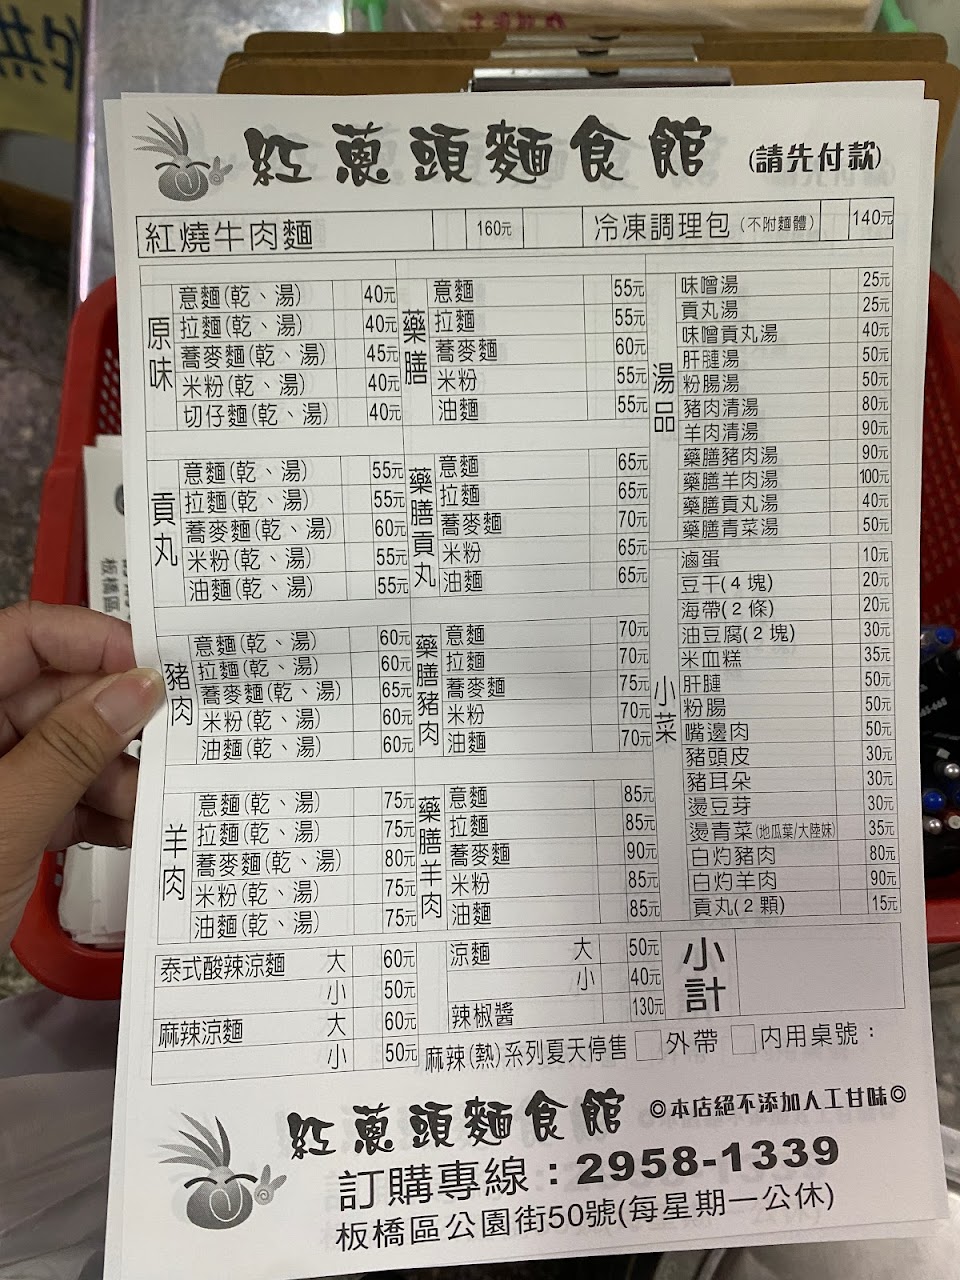 紅蔥頭麵食館 (請先付款)
紅燒牛肉麵 160元 冷凍調理包(不附麵體) 140元
原味
意麵(乾、湯) 40元
拉麵(乾、湯) 40元
蕎麥麵(乾、湯) 45元
米粉(乾、湯) 40元
切仔麵(乾、湯) 40元
貢丸
意麵(乾、湯) 55元
拉麵(乾、湯) 55元
蕎麥麵(乾、湯) 60元
米粉(乾、湯) 55元
油麵(乾、湯) 55元
豬肉
意麵(乾、湯) 60元
拉麵(乾、湯) 60元
蕎麥麵(乾、湯) 65元
米粉(乾、湯) 60元
油麵(乾、湯) 60元
羊肉
意麵(乾、湯) 75元
拉麵(乾、湯) 75元
蕎麥麵(乾、湯) 80元
米粉(乾、湯) 75元
油麵(乾、湯) 75元
藥膳
意麵 55元
拉麵 55元
蕎麥麵 60元
米粉 55元
油麵 55元
藥膳貢丸
意麵 65元
拉麵 65元
蕎麥麵 70元
米粉 65元
油麵 65元
藥膳豬肉
意麵 70元
拉麵 70元
蕎麥麵 75元
米粉 70元
油麵 70元
藥膳羊肉
意麵 85元
拉麵 85元
蕎麥麵 90元
米粉 85元
油麵 85元
湯品
味噌湯 25元
貢丸湯 25元
味噌貢丸湯 40元
肝膧湯 50元
粉腸湯 50元
豬肉清湯 80元
羊肉清湯 90元
藥膳豬肉湯 90元
藥膳羊肉湯 100元
藥膳貢丸湯 40元
藥膳青菜湯 50元
小菜
滷蛋 10元
豆干(4塊) 20元
海帶(2條) 20元
油豆腐(2塊) 30元
米血糕 35元
肝膧 50元
粉腸 50元
嘴邊肉 50元
豬頭皮 30元
豬耳朵 30元
燙豆芽 30元
燙青菜(地瓜葉/大陸妹) 35元
白灼豬肉 80元
白灼羊肉 90元
貢丸(2顆) 15元
泰式酸辣涼麵 大 60元
小 50元
麻辣涼麵 大 60元
小 50元
涼麵 大 50元
小 40元
辣椒醬 130元
小計
麻辣(熱)系列夏天停售 □外帶 □內用桌號：
紅蔥頭麵食館 ◎本店絕不添加人工甘味◎
訂購專線：2958-1339
板橋區公園街50號(每星期一公休)
板橋區